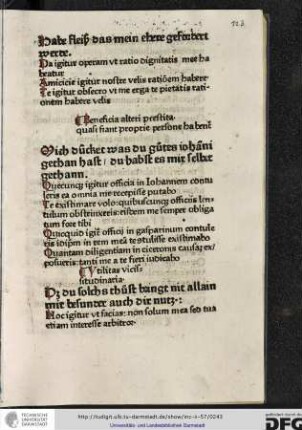 Habe fleiß das mein ehere gefordert
werde.
Da igitur operam vt ratio dignitatis mee ha
beatur
Amicicie igitur nostre velis rationẽ habere
Te igitur obsecro vt me erga te pietatis rati-
onem habere velis
Beneficia alteri prestita
quasi fiant proprie persone habent
Mich dücket was du gůtes iohãni
gethan hast / du habst es mir selbst
gethann.
Quecunqʒ igitur officia in Iohannem contu
leris ea omnia me recepisse putabo
Te existimare volo: quibuscunqʒ officiis len-
tulum obstrinxeris: eisdem me semper obliga
tum fore tibi
Quicquid igit officij in gasparinum contule
ris id ipm in tem mea te tulisse existimabo
Quantam diligentiam in ciceronis causa ex-
posueris: tanti me a te fieri iudicabo
Vtilitas vicis
situdinaria
Dʒ du solchs thůst bringt nit allain
mir besunder auch dir nutz:
Hoc igitur vt facias: non solum mea sed tua
etiam interesse arbitror
TECHNISCHE
UNIVERSITÄT
DARMSTADT
http://tudigit.ulb.tu-darmstadt.de/show/inc-ii-57/0243
Universitäts- und Landesbibliothek Darmstadt
gefördert durch die
DFG